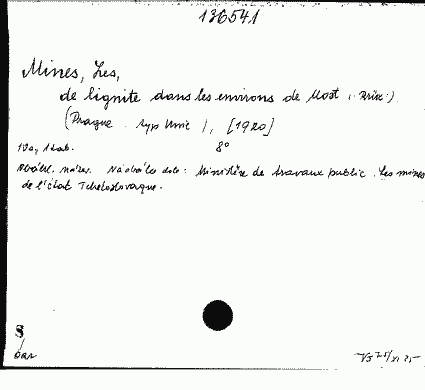 136541
Mines, Les,
de lignite dans les environs de Most (: Brüx :)
(Prague. typ Unie), [1920]
8°
tab.
Ministère de travaux public. Les mines
de l'état Tchécoslovaque.
S